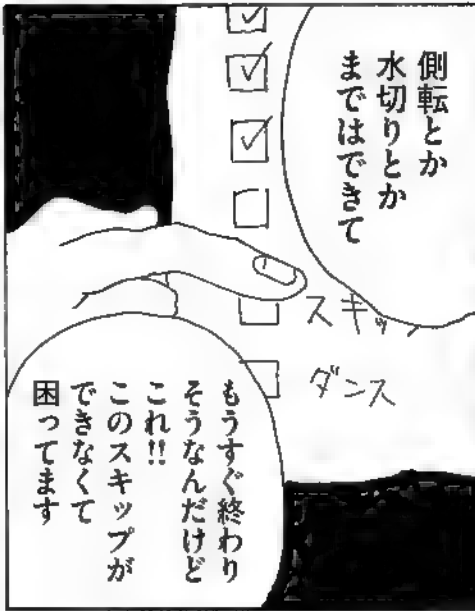 側転とか
水切りとか
まではできて
スキッ
ダンス
もうすぐ終わり
そうなんだけど
これ!!
このスキップが
できなくて
困ってます